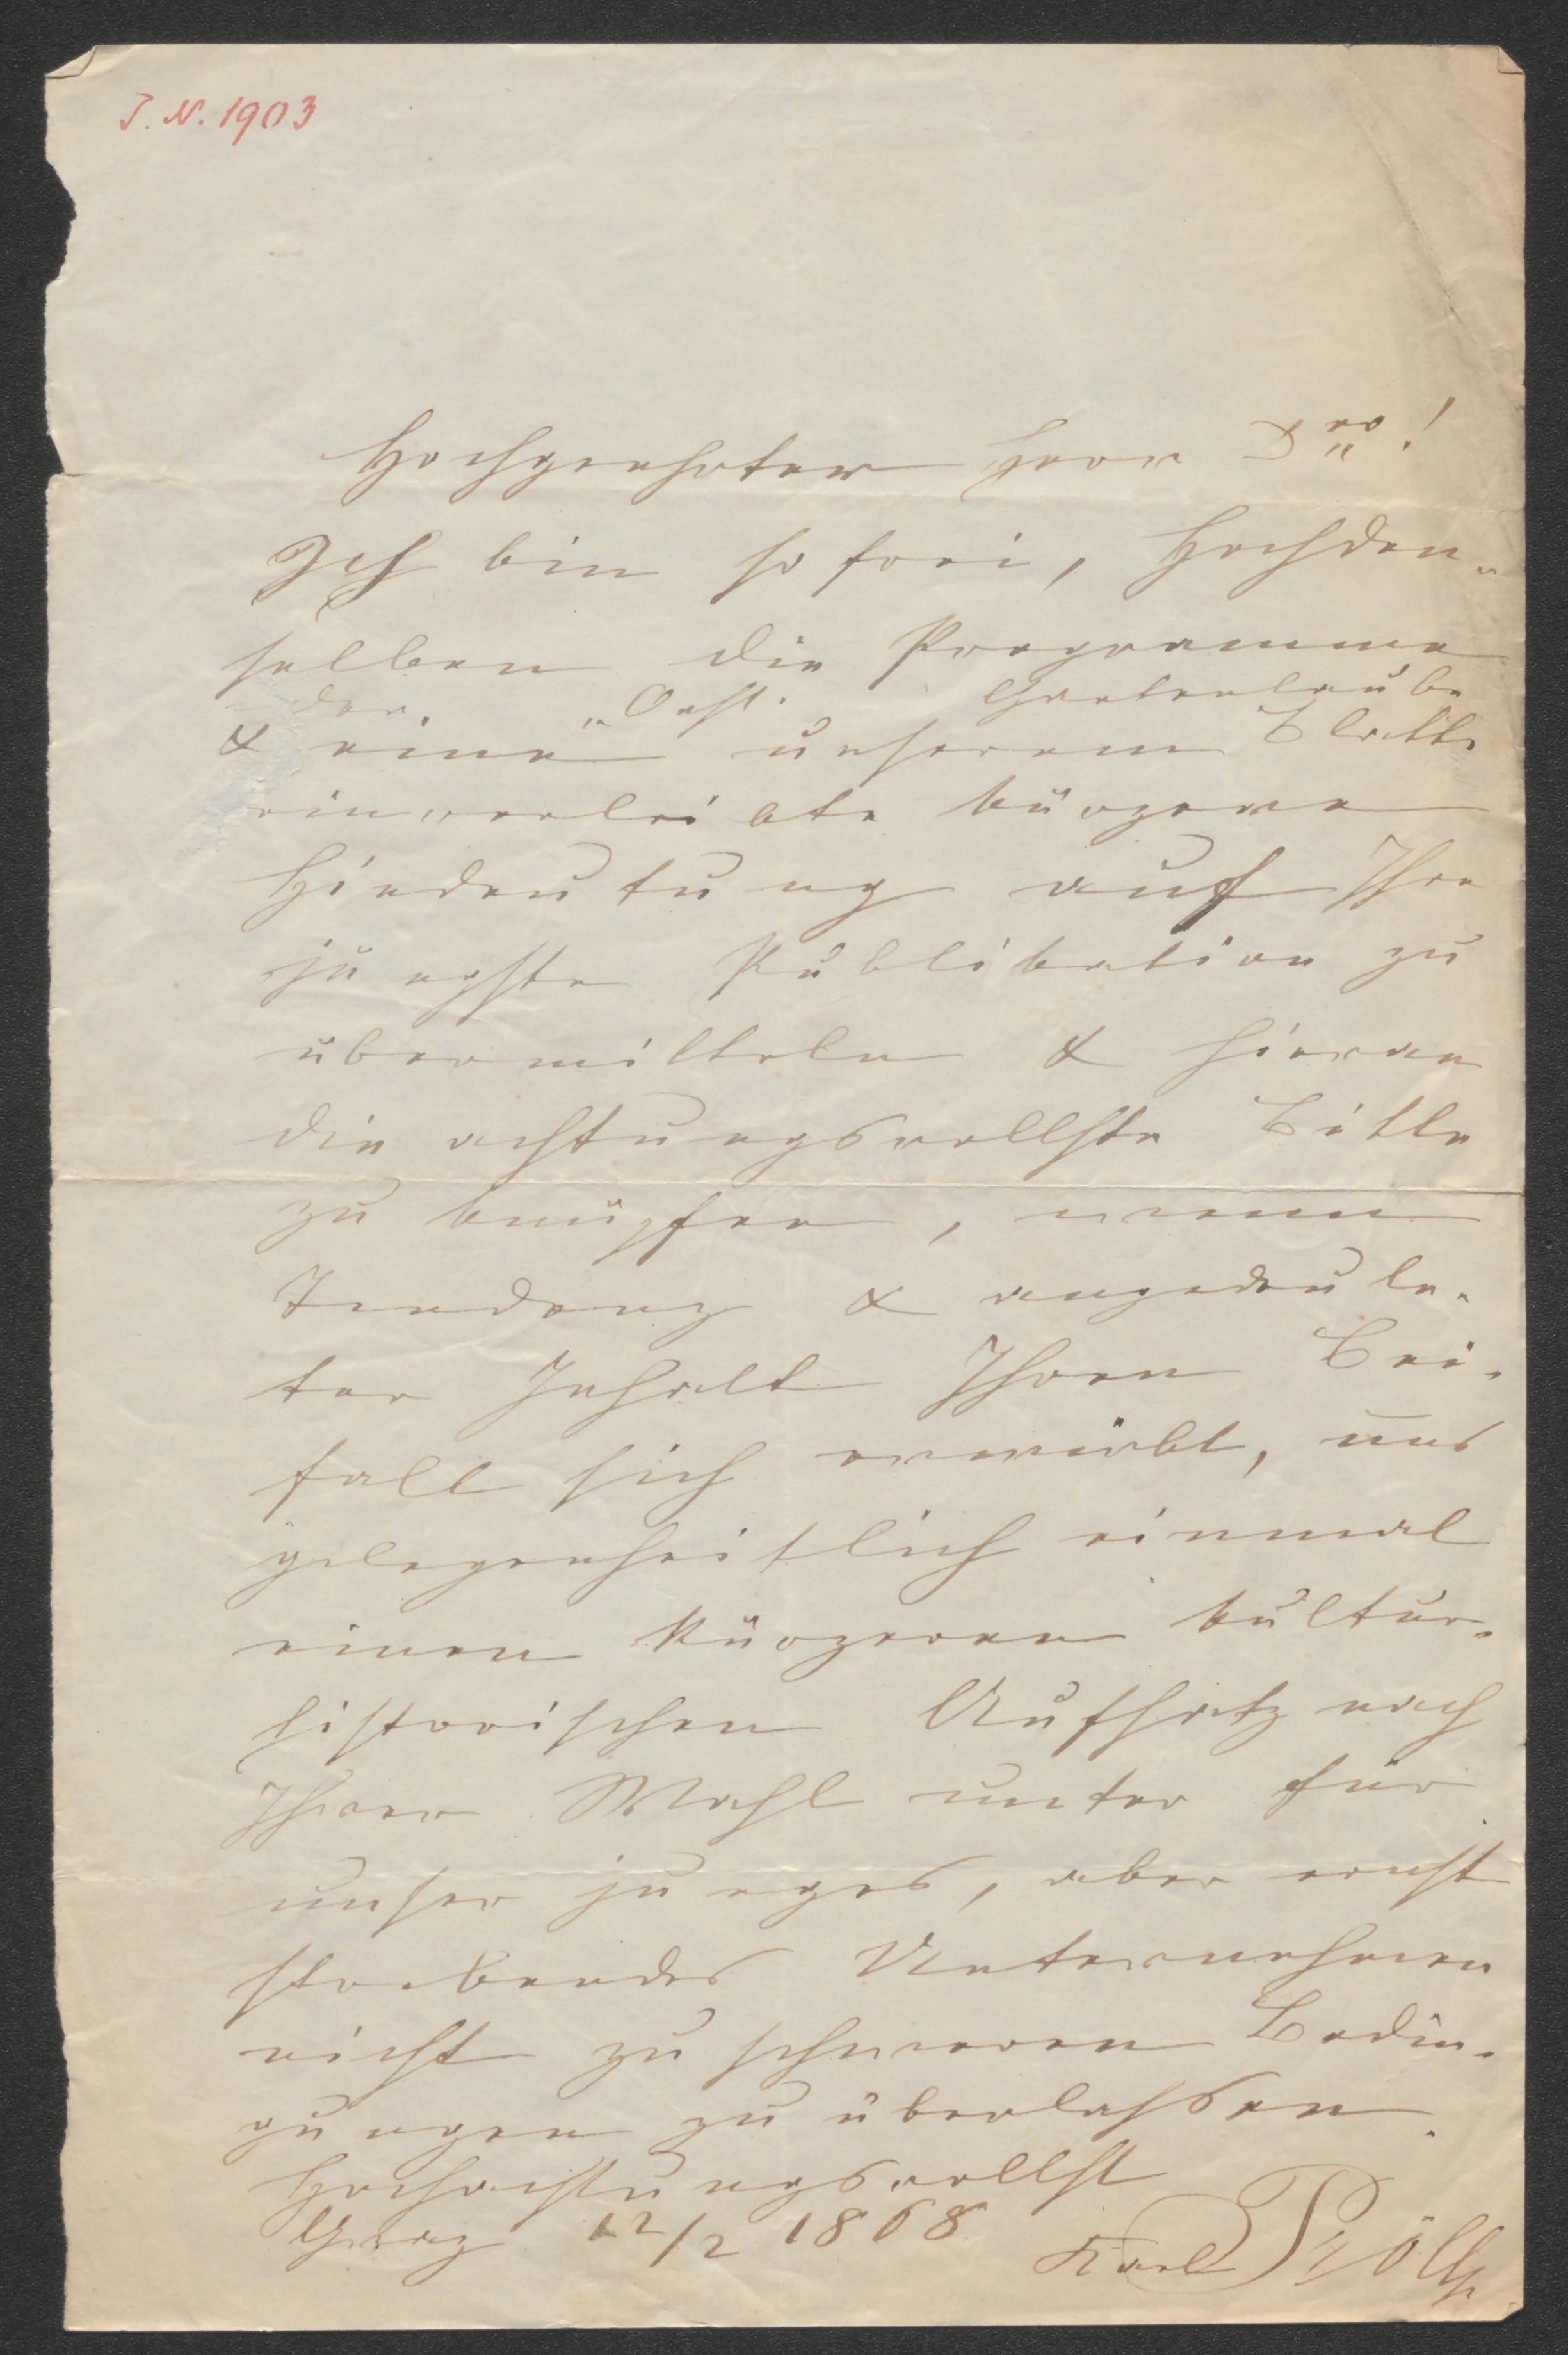 J. N. 1903
Hochgeehrter Herr Dr!
Ich bin so frei, Hochden-
selben die Programme
der „Oest. Gartenlaube
& eine unserem Blatte
einverleibte kürzere
Hindeutung auf Ihre
jüngste Publikation zu
übermitteln & hieran
die achtungsvollste Bitte
zu knüpfen, wenn
Tendenz & angedeute-
ter Inhalt Ihren Bei-
fall sich erwirbt, uns
gelegenheitlich einmal
einen kürzeren kultur-
historischen Aufsatz nach
Ihrer Wahl unter für
unser junges, aber ernst
strebendes Unternehmen
nicht zu schweren Bedin-
gungen zu überlassen.
Hochachtungsvollst
Graz 12/2 1868 Karl Pröll